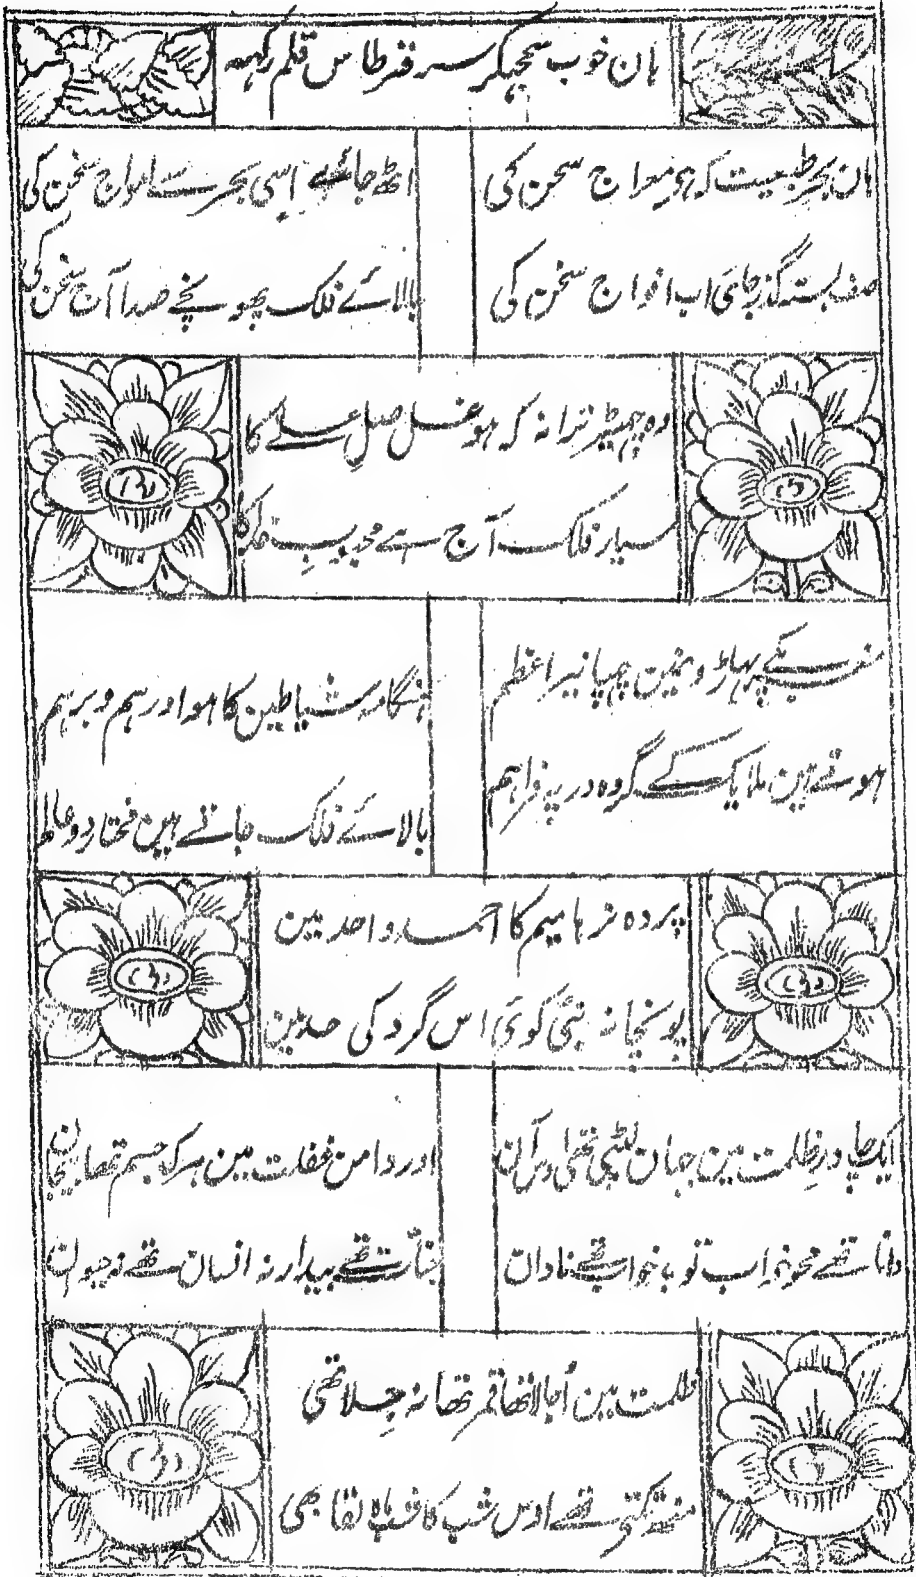 ہان خوب سمجھکر سر قرطاس قلم رکھہ
ہان بحر طبیعت کہ ہو معراج سخن کی
اٹھ جائے اسی بحر سے امواج سخن کی
صف بستہ گذر جائے اب افواج سخن کی
بالائے فلک پہونچے صدا آج سخن کی
وہ چھیڑ ترانہ کہ ہو غل صل علے کا
سیار فلک آج ہے محبوب خدا کا
مغرب کے پہاڑو نمین چھپا نیر اعظم
ہنگامہ شیاطین کا ہوا درہم و برہم
ہوتے ہین ملایک کے گروہ در پہ فراہم
بالائے فلک جاتے ہین مختار دو عالم
پردہ نرہا میم کا احمد و احد مین
پونچا نہ نبی کوئی اس گرد کی حد مین
ایک چادر ظلمت مین جہان لپٹی تھی اوس آن
اور دامن غفلت مین ہر یک جسم تھا بیجان
دانا تھے محو خواب تو بد خواب تھے نادان
جنات تھے بیدار نہ انسان تھے نہ حیوان
ظلمت مین اجالا تھا قمر تھا نہ جلا تھی
تھے اوس شب کا نقاب لقا بھی